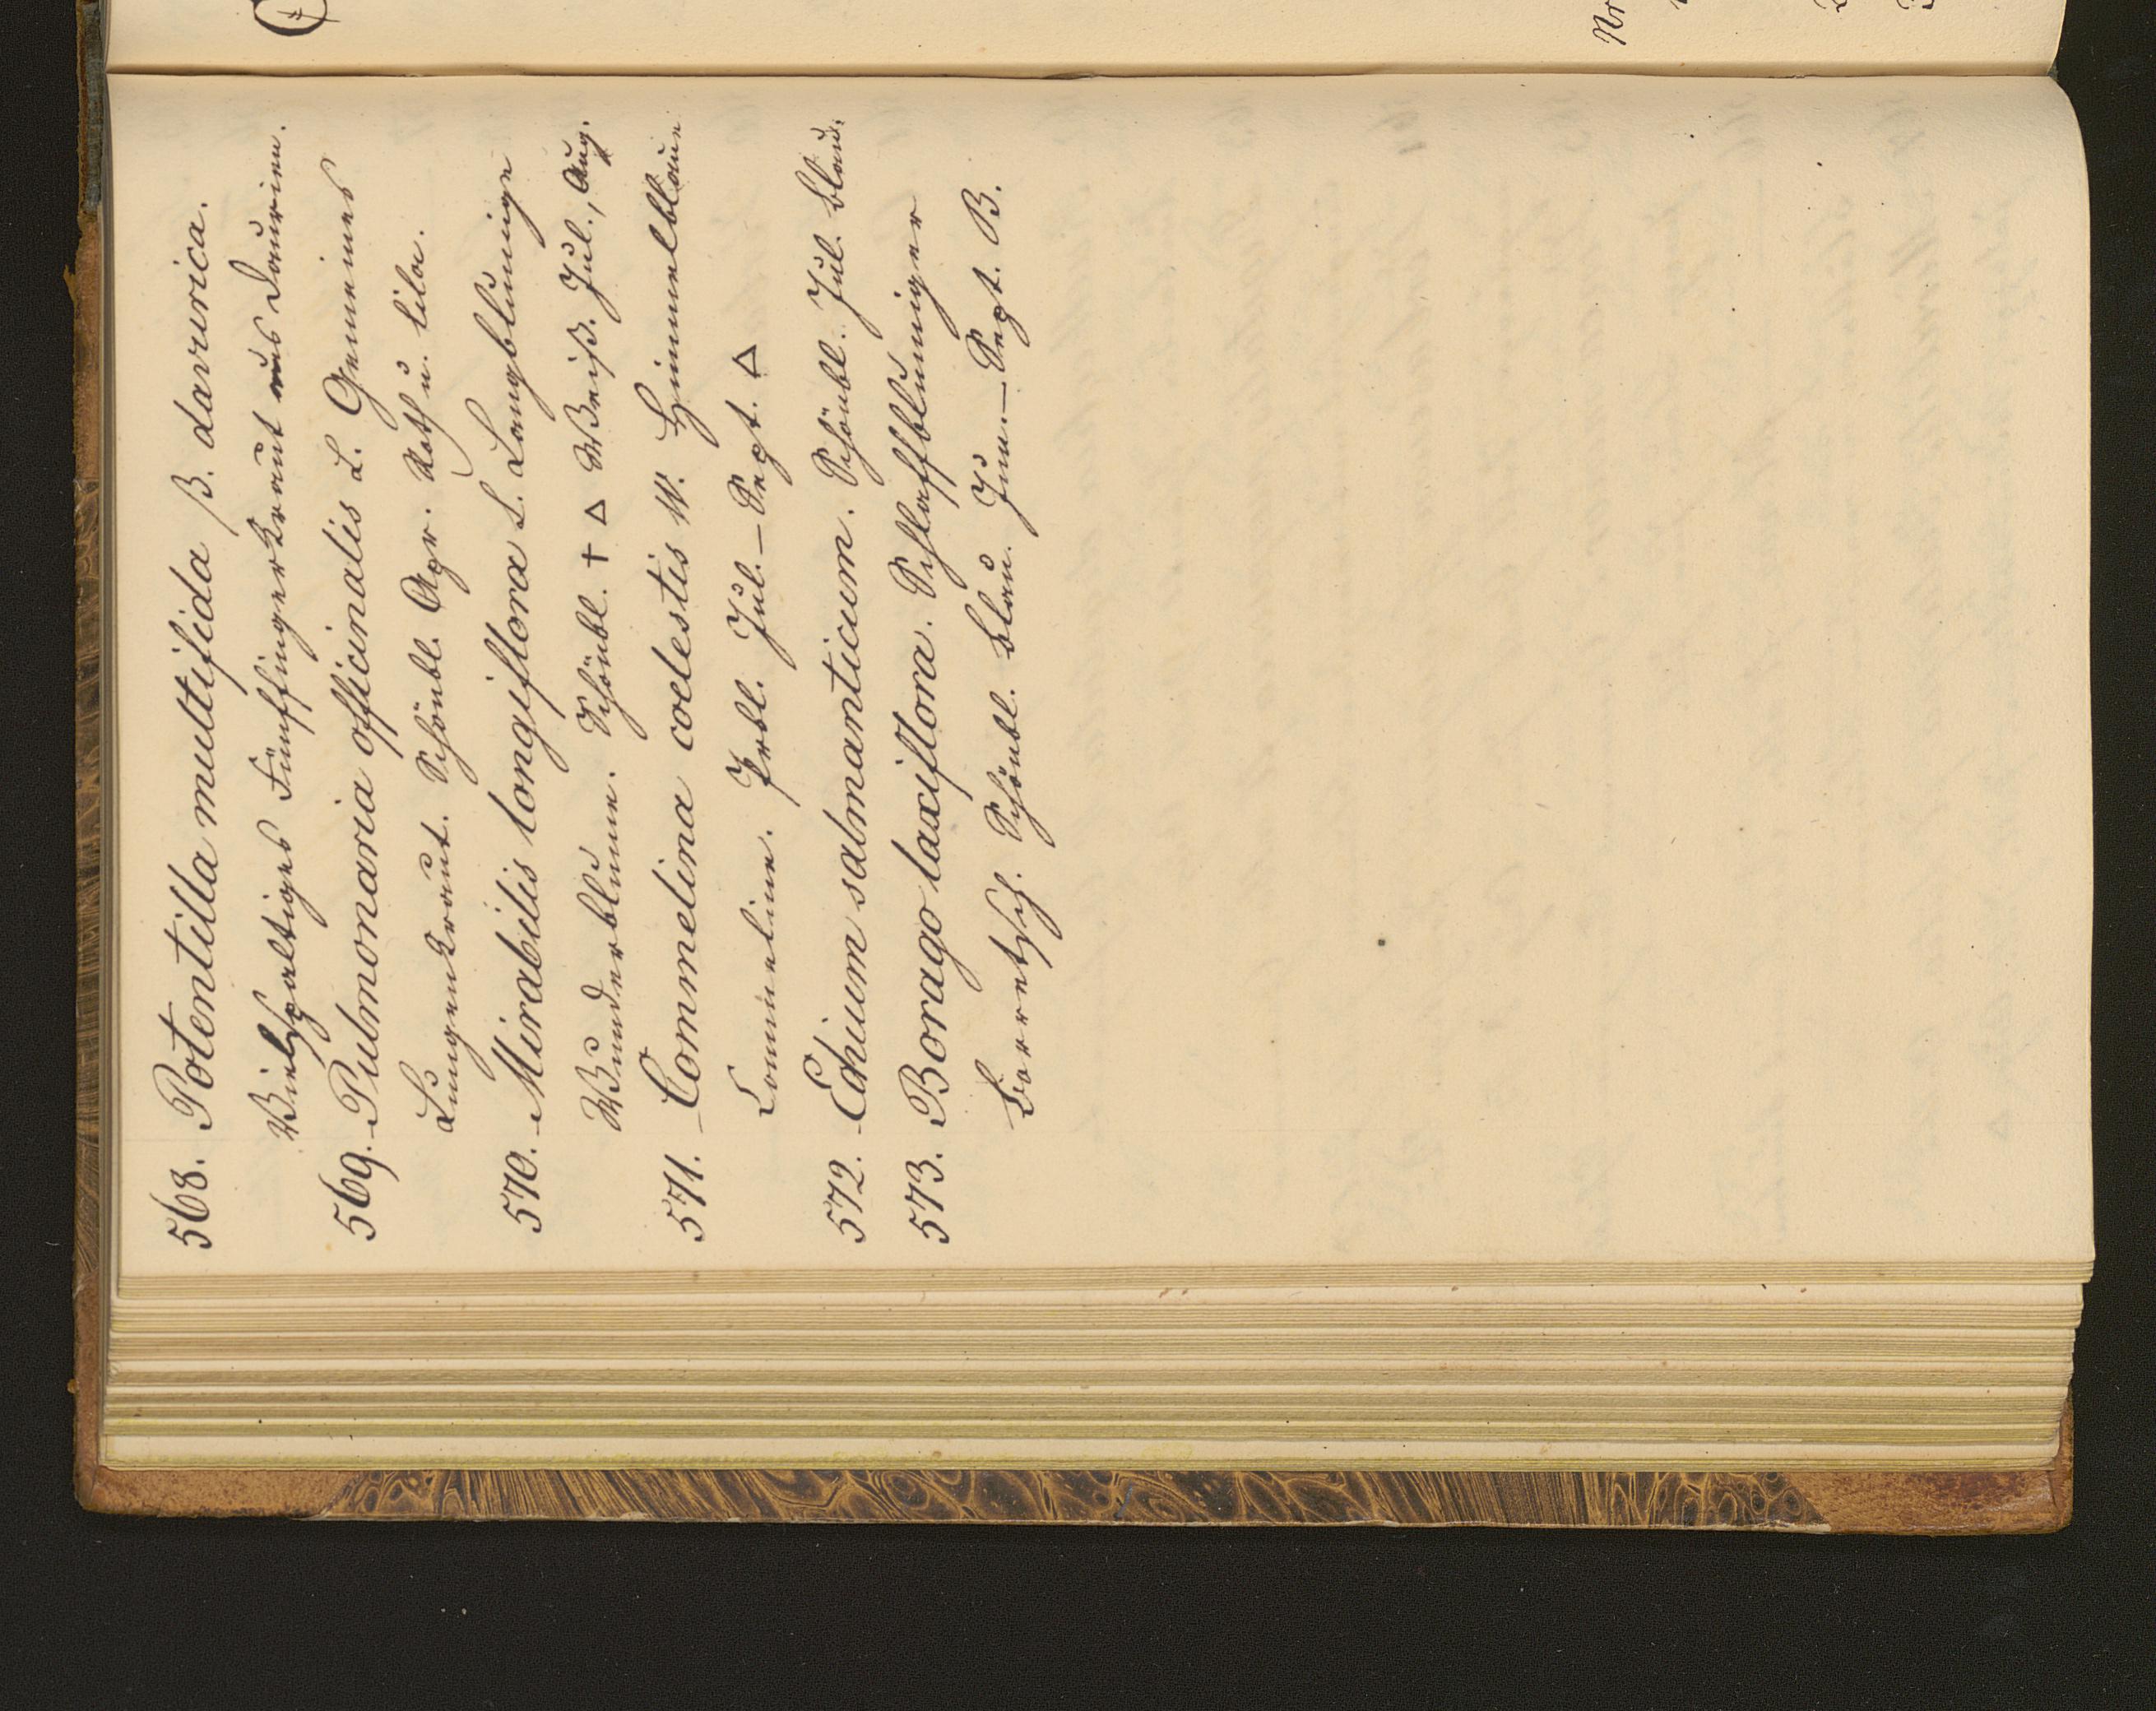 568. Potentilla multifida β. davurica.
Vielspaltiges Fünffingerkraut aus Daurien.
569. Pulmonaria officinalis L. Gemeines
Lungenkraut. Schönbl. Apr. Roth u. lila.
570. Mirabilis longiflora L. Langblumige
Wunderblume. Schönbl. † △ Weiß. Jul., Aug.
571. Commelina coelestis W. Himmelblaue
Commeline. Jul. – Sept. △
572. Echium salmanticum. Schönbl. Jul. blau.
573. Borago laxiflora. Schlaffblumiger
Borretsch. Schönbl. blau. Jun. – Sept. B.